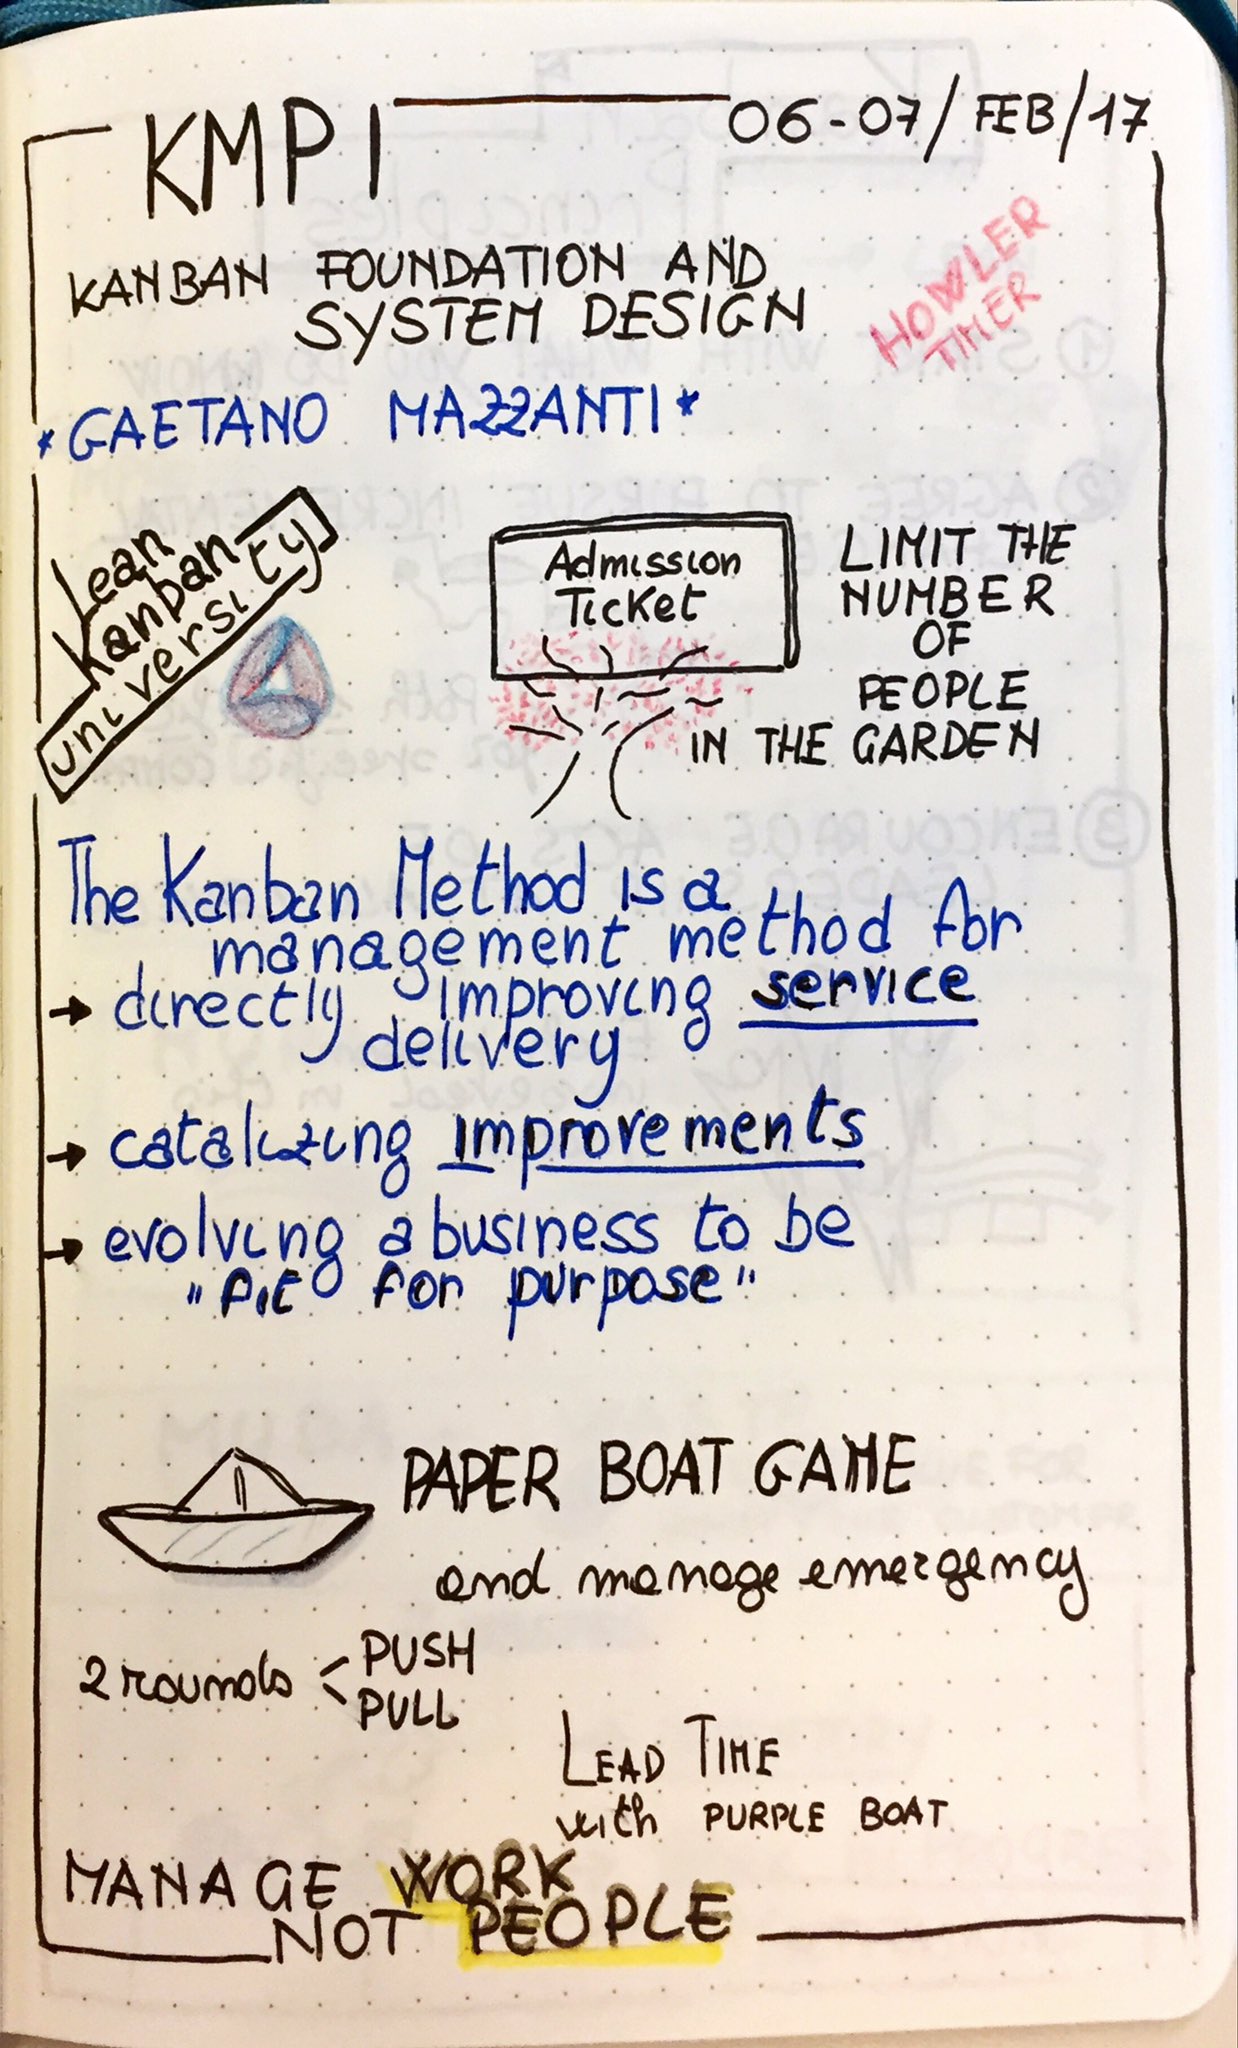 KMP I
06-07/FEB/17
KANBAN FOUNDATION AND
SYSTEM DESIGN
HOWLER
TIMER
*GAETANO MAZZANTI*
Lean
Kanban
University
Admission
Ticket
LIMIT THE
NUMBER
OF
PEOPLE
IN THE GARDEN
The Kanban Method is a
management method for
→ directly improving service
delivery
→ catalizing improvements
→ evolving a business to be
"fit for purpose"
PAPER BOAT GAME
and manage emergency
2 rounds < PUSH
PULL
LEAD TIME
with PURPLE BOAT
MANAGE WORK
NOT PEOPLE